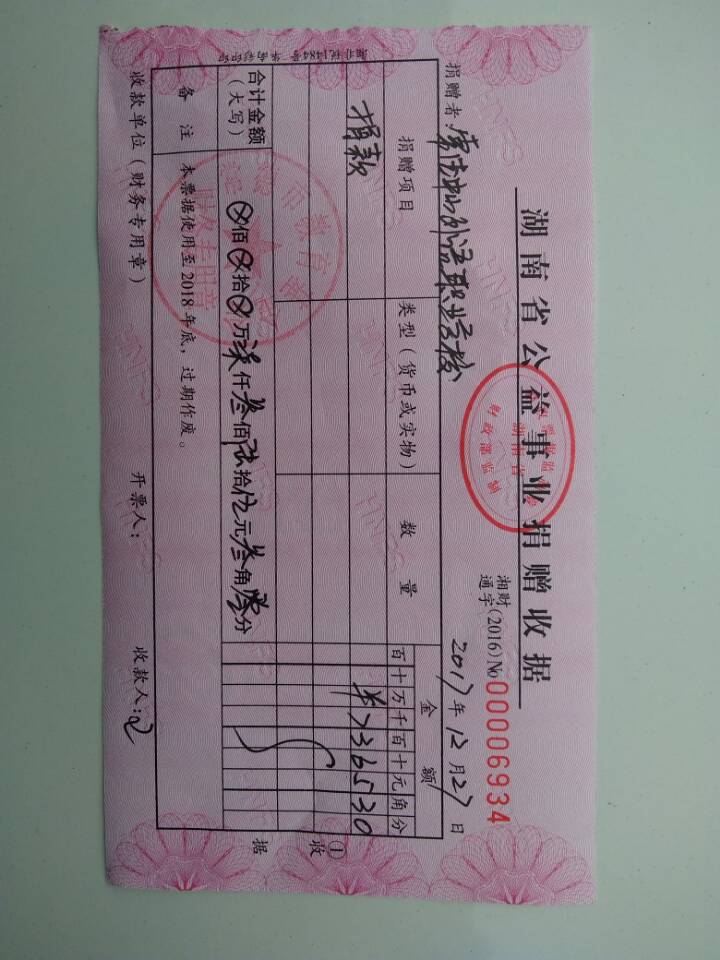 湖南省公益事业捐赠收据
湘财
通字(2016)No 00006934
捐赠者: 职业学校 2017年12月27日
捐赠项目 类型(货币或实物) 数量 金额
百十万千百十元角分
捐款 ¥736530
合计金额
(大写) ⊗佰⊗拾⊗万柒仟叁佰陆拾伍元叁角零分
备注 本票据使用至2018年底，过期作废。
收款单位(财务专用章) 开票人: 收款人:
①
收
据
财政部监制
湖南省
市教育基